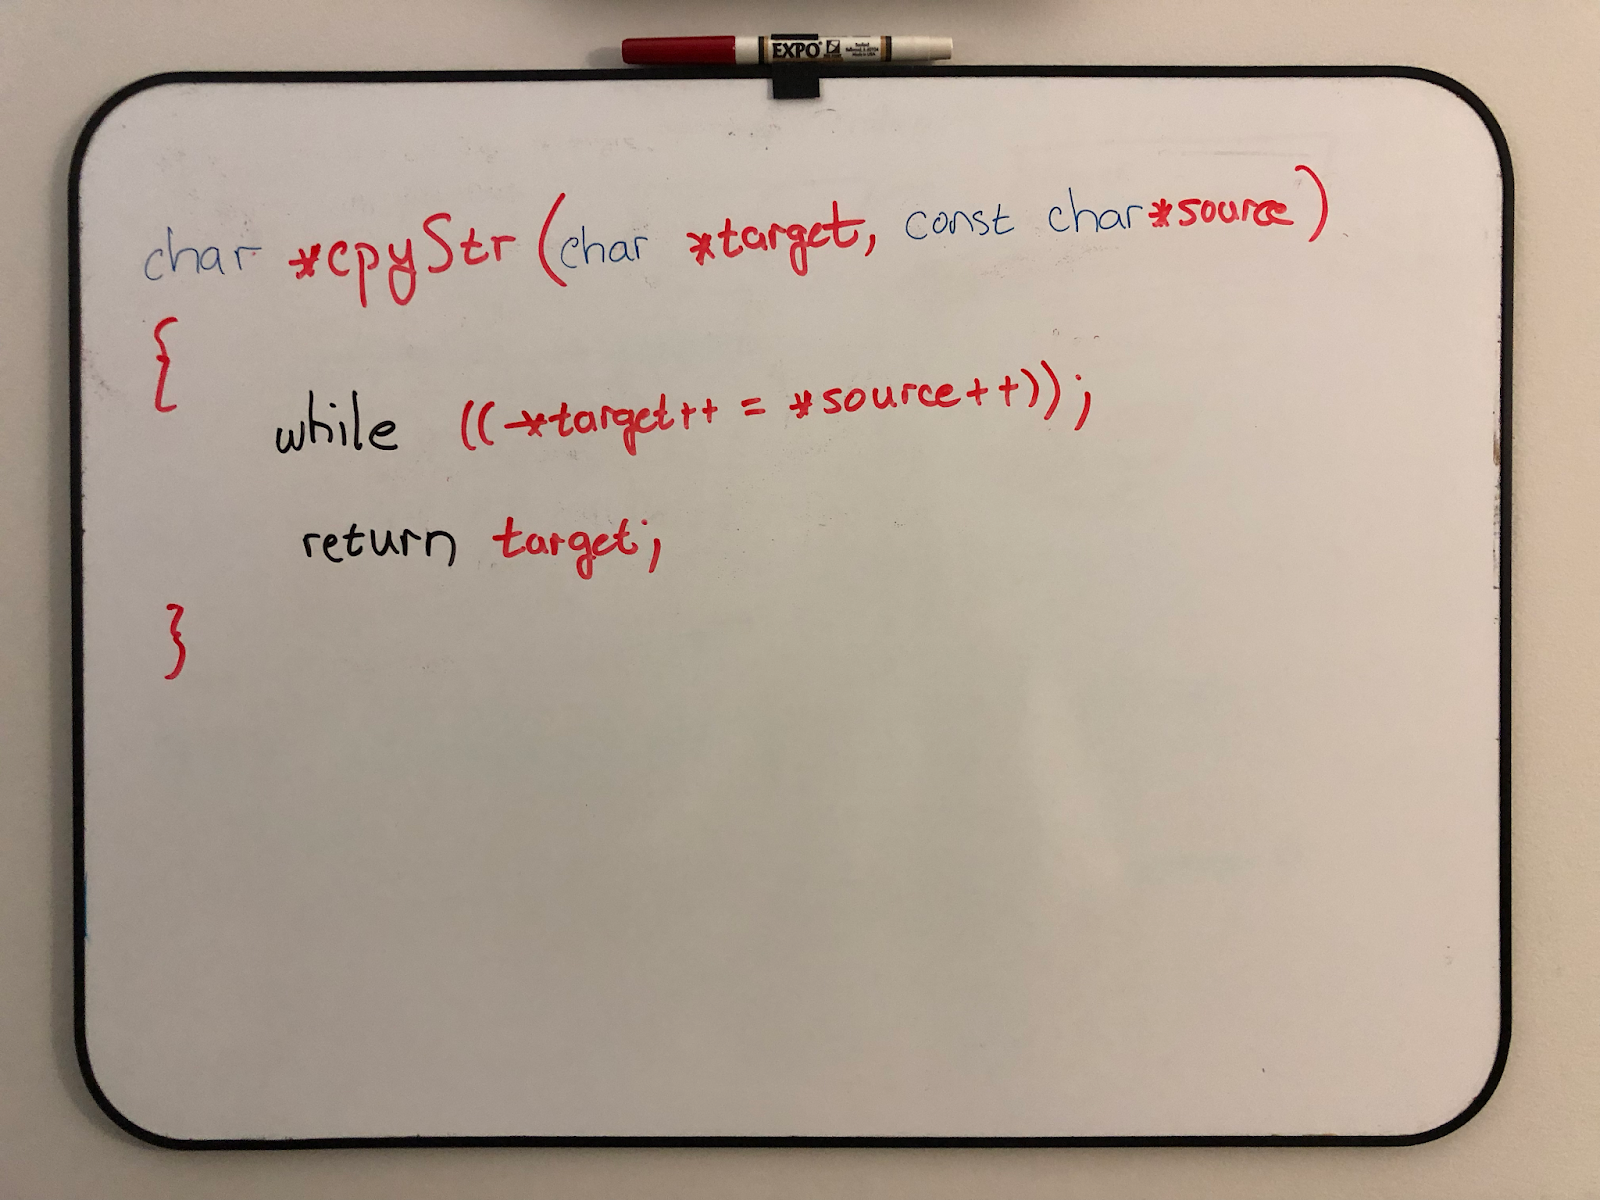 EXPO
char *cpyStr (char *target, const char *source)
{
while ((*target++ = *source++));
return target;
}